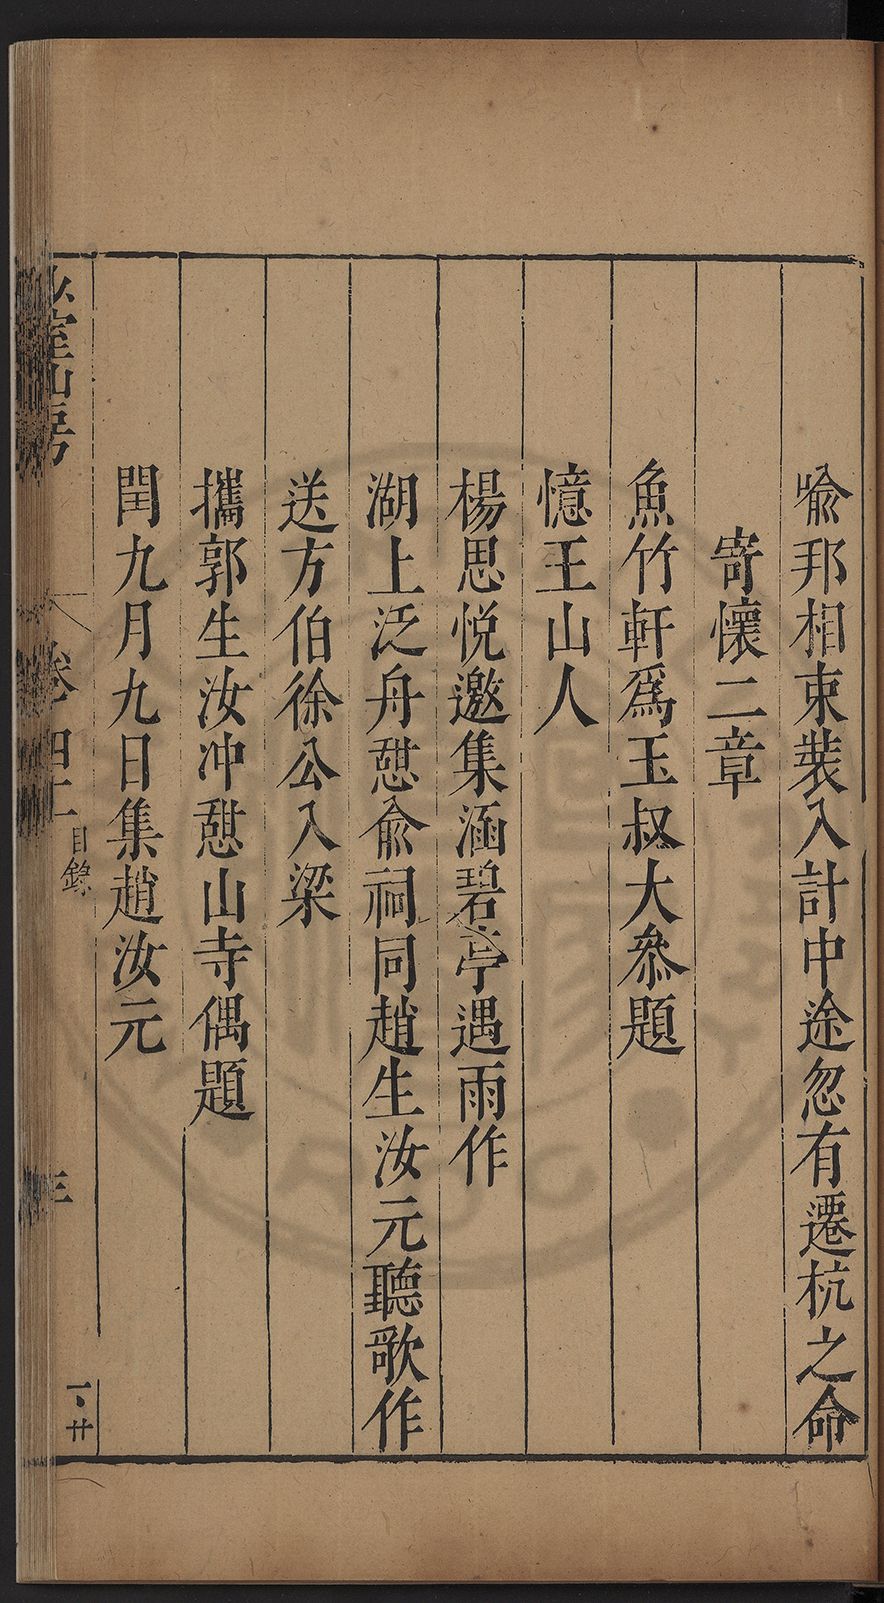 喻邦相束裝入計中途忽有遷杭之命
寄懷二章
魚竹軒爲玉叔大叅題
憶王山人
楊思悅邀集涵碧亭遇雨作
湖上泛舟憇俞祠同趙生汝元聽歌作
送方伯徐公入梁
攜郭生汝冲憇山寺偶題
閏九月九日集趙汝元
室山房
卷四十
目錄
三